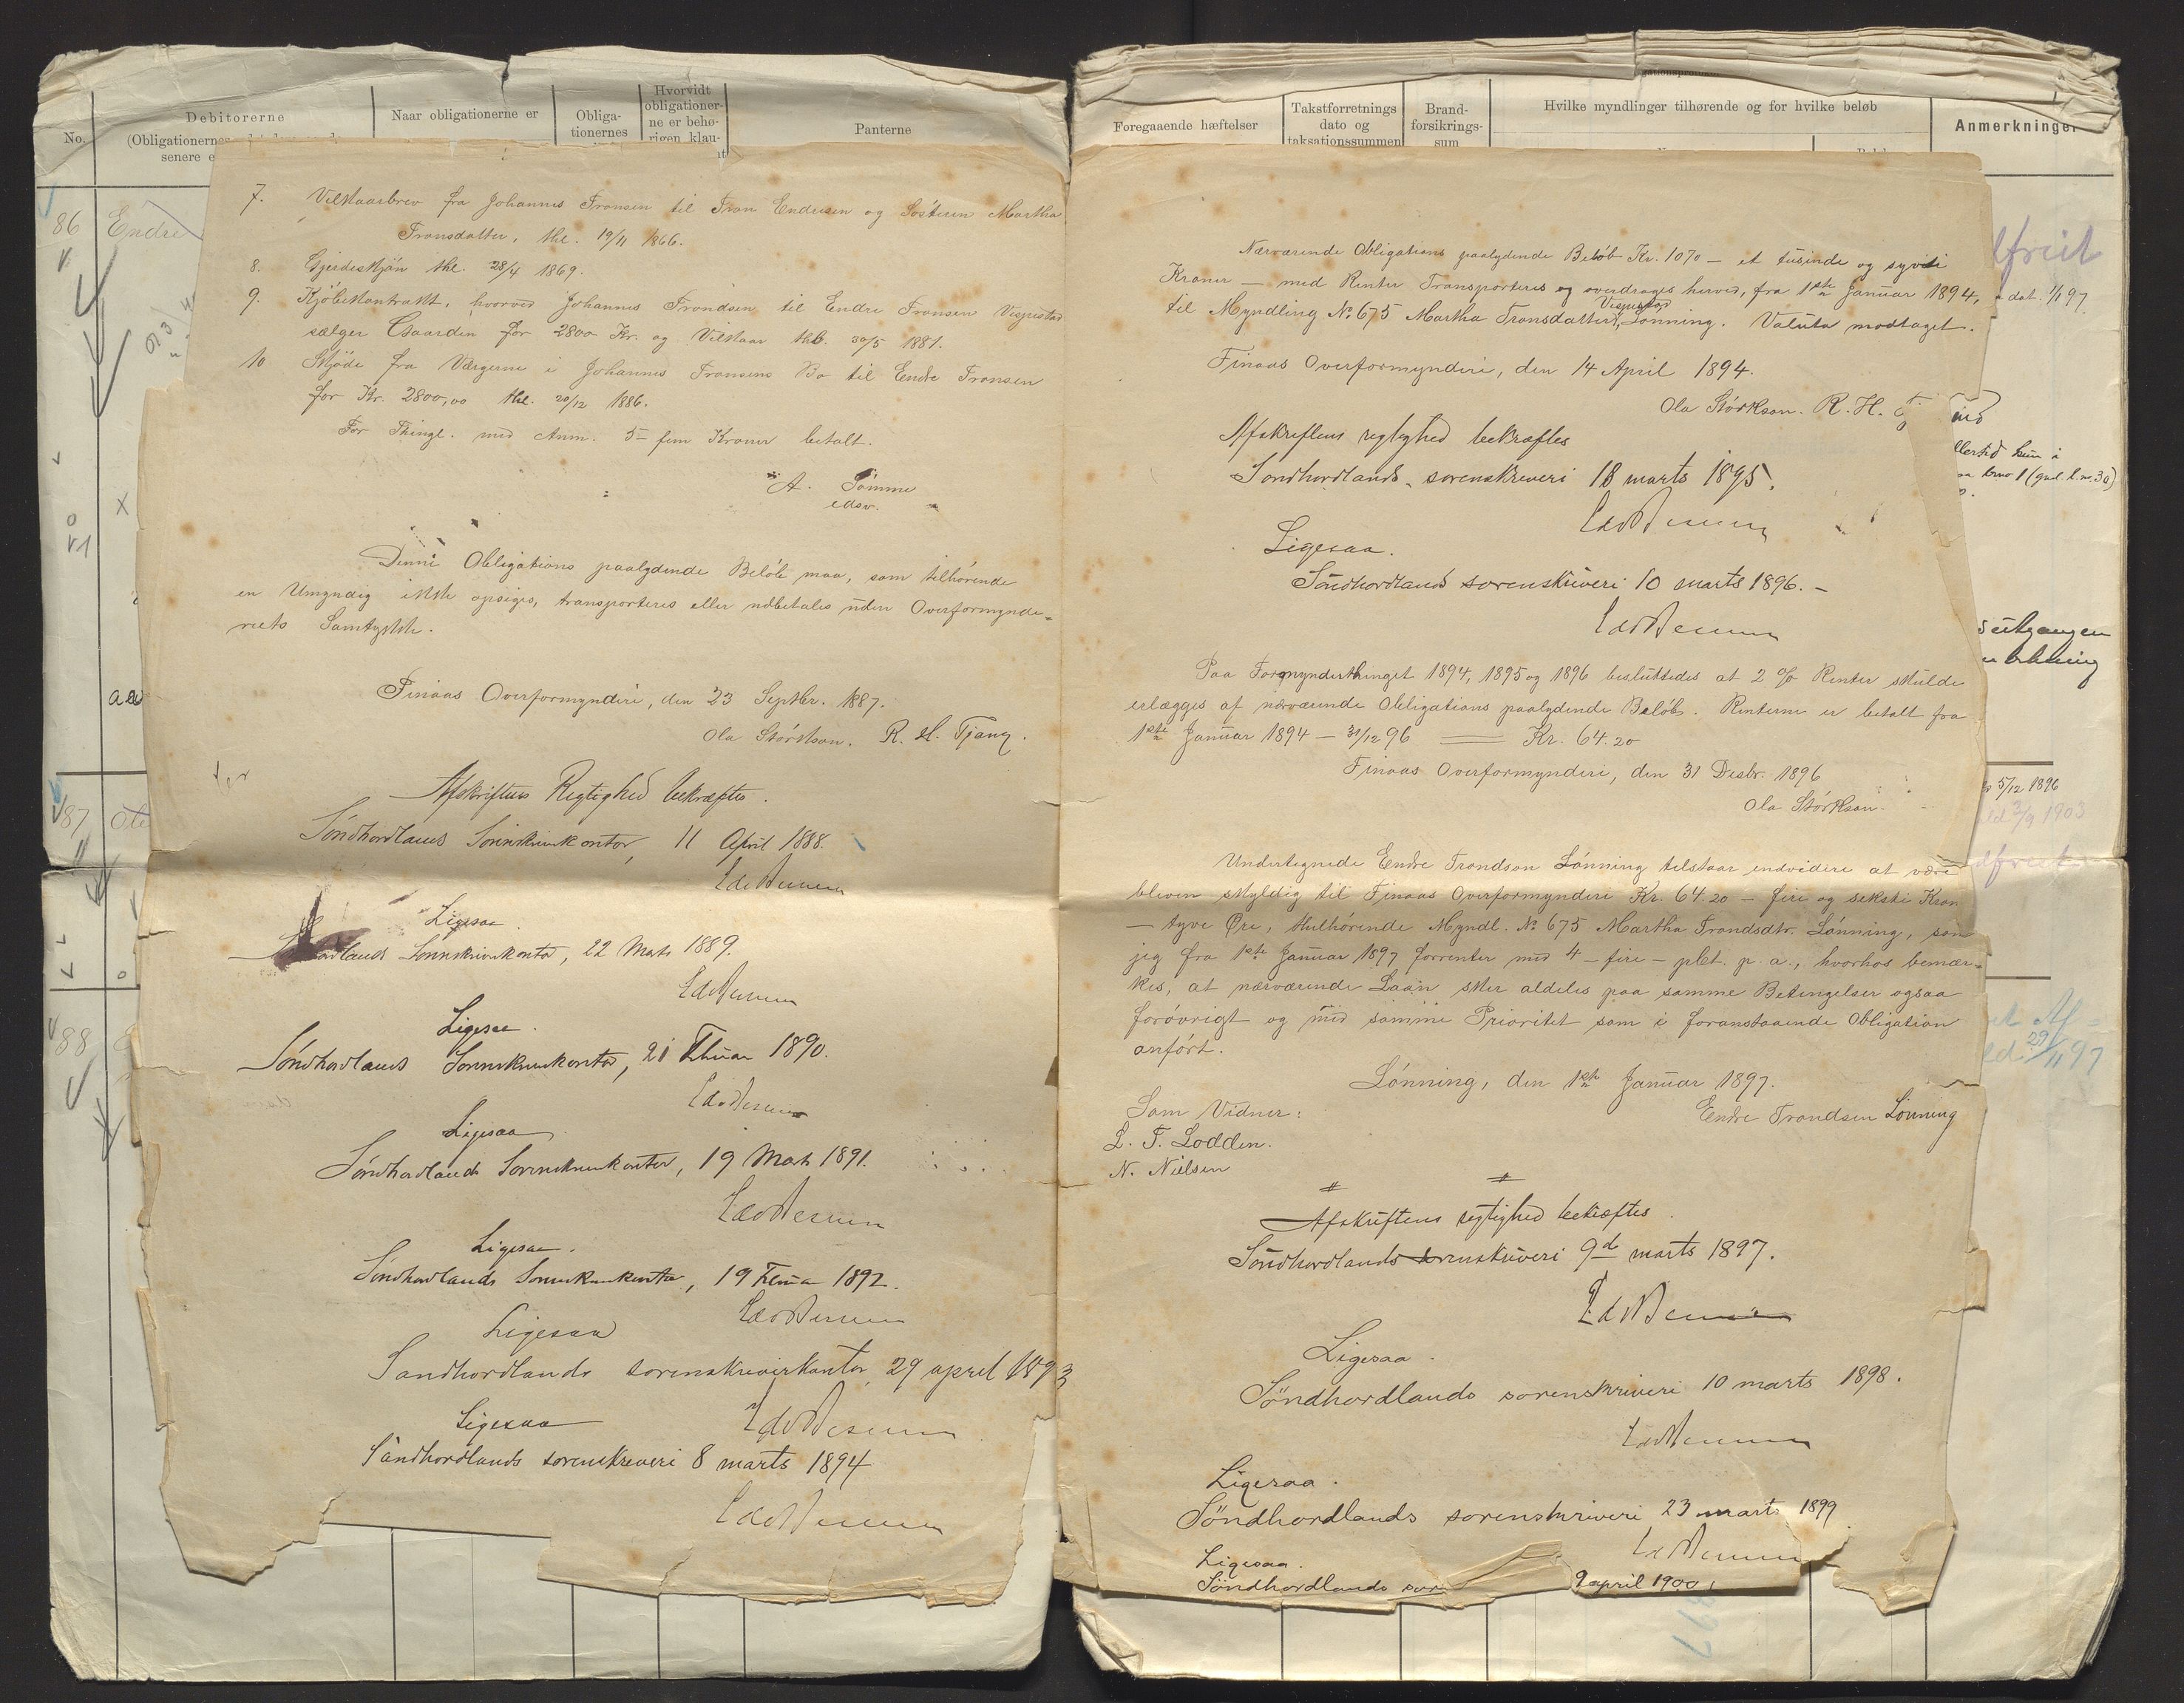 No.
Debitorerne
(Obligationernes
senere e
Naar obligationerne er
Obliga-
tionernes
Hvorvidt
obligationer-
ne er behø-
rigen klau-
Panterne
86 Endre
87
88
7. Vilkaarsbrev fra Johannes Tronsen til Tron Endresen og Søsteren Martha
Tronsdatter, thl. 19/11 1866.
8. Gjerdeskjøn thl. 28/4 1869.
9. Kjøbekontrakt, hvorved Johannes Trondsen til Endre Tronsen Vespestad
sælger Gaarden for 2800 Kr. og Vilkaar thl. 30/5 1881.
10 Skjøde fra Værgerne i Johannes Tronsens Bo til Endre Tronsen
for Kr. 2800,00 thl. 20/12 1886.
For Thingl. med Anm. 5 – fem Kroner betalt.
A. Sømme
edsv.
Denne Obligations paalydende Beløb maa, som tilhørende
en Umyndig ikke opsiges, transporteres eller udbetales uden Overformynde=
riets Samtykke.
Finaas Overformynderi, den 23 Septbr. 1887.
Ola Størkson. R. H. Tjong.
Afskriftens Rigtighed bekræftes.
Søndhordlands Sorenskriverkontor, 11 April 1888.
Ligesaa
Sorenskriverkontor, 22 Marts 1889.
Ligesaa.
Søndhordlands Sorenskriverkontor, 21 Februar 1890.
Ligesaa
Søndhordlands Sorenskriverkontor, 19 Marts 1891.
Ligesaa.
Søndhordlands Sorenskriverkontor, 19 Februar 1892.
Ligesaa
Søndhordlands sorenskriverkontor, 29 april 1893
Ligesaa
Søndhordlands sorenskriveri 8 marts 1894
Foregaaende hæftelser
Takstforretnings
dato og
taksationssummen
Brand-
forsikrings-
sum
Hvilke myndlinger tilhørende og for hvilke beløb
Anmerkninger
Nærværende Obligations paalydende Beløb Kr. 1070 – et tusinde og sytti
Kroner – med Renter Transporteres og overdrages herved, fra 1ste Januar 1894,
Vespestad
til Myndling No 675 Martha Tronsdatter, Lønning. Valuta modtaget.
Finaas Overformynderi, den 14 April 1894.
Ola Størkson. R. H.
Afskriftens rigtighed bekræftes
Søndhordlands sorenskriveri 18 marts 1895.
Ligesaa.
Søndhordlands sorenskriveri 10 marts 1896. –
Paa Formynderthinget 1894, 1895 og 1896 besluttedes at 2 % Renter skulde
erlægges af nærværende Obligations paalydende Beløb. Renterne er betalt fra
1ste Januar 1894 – 31/12 96 Kr. 64.20
Finaas Overformynderi, den 31 Desbr. 1896
Ola Størkson.
Undertegnede Endre Trondson Lønning tilstaar endvidere at være
bleven skyldig til Finaas Overformynderi Kr. 64.20 – fire og seksti Kron
– tyve Øre, tilhørende Myndl. No 675 Martha Trondsdtr. Lønning, som
jeg fra 1ste Januar 1897 forrenter med 4 – fire – pCt. p. a., hvorhos bemær=
kes, at nærværende Laan sker aldeles paa samme Betingelser ogsaa
forøvrigt og med samme Prioritet som i foranstaaende Obligation
anført.
Lønning, den 1ste Januar 1897.
Endre Trondsen Lønning
Som Vidner:
L. T. Lodden.
N. Nielsen
Afskriftens rigtighed bekræftes.
Søndhordlands sorenskriveri 9d marts 1897.
Ligesaa.
Søndhordlands sorenskriveri 10 marts 1898.
Ligesaa.
Søndhordlands sorenskriveri 23 marts 1899
Ligesaa.
Søndhordlands sor 9 april 1900
dat. 1/1 97.
5/12 1896
29/11 97